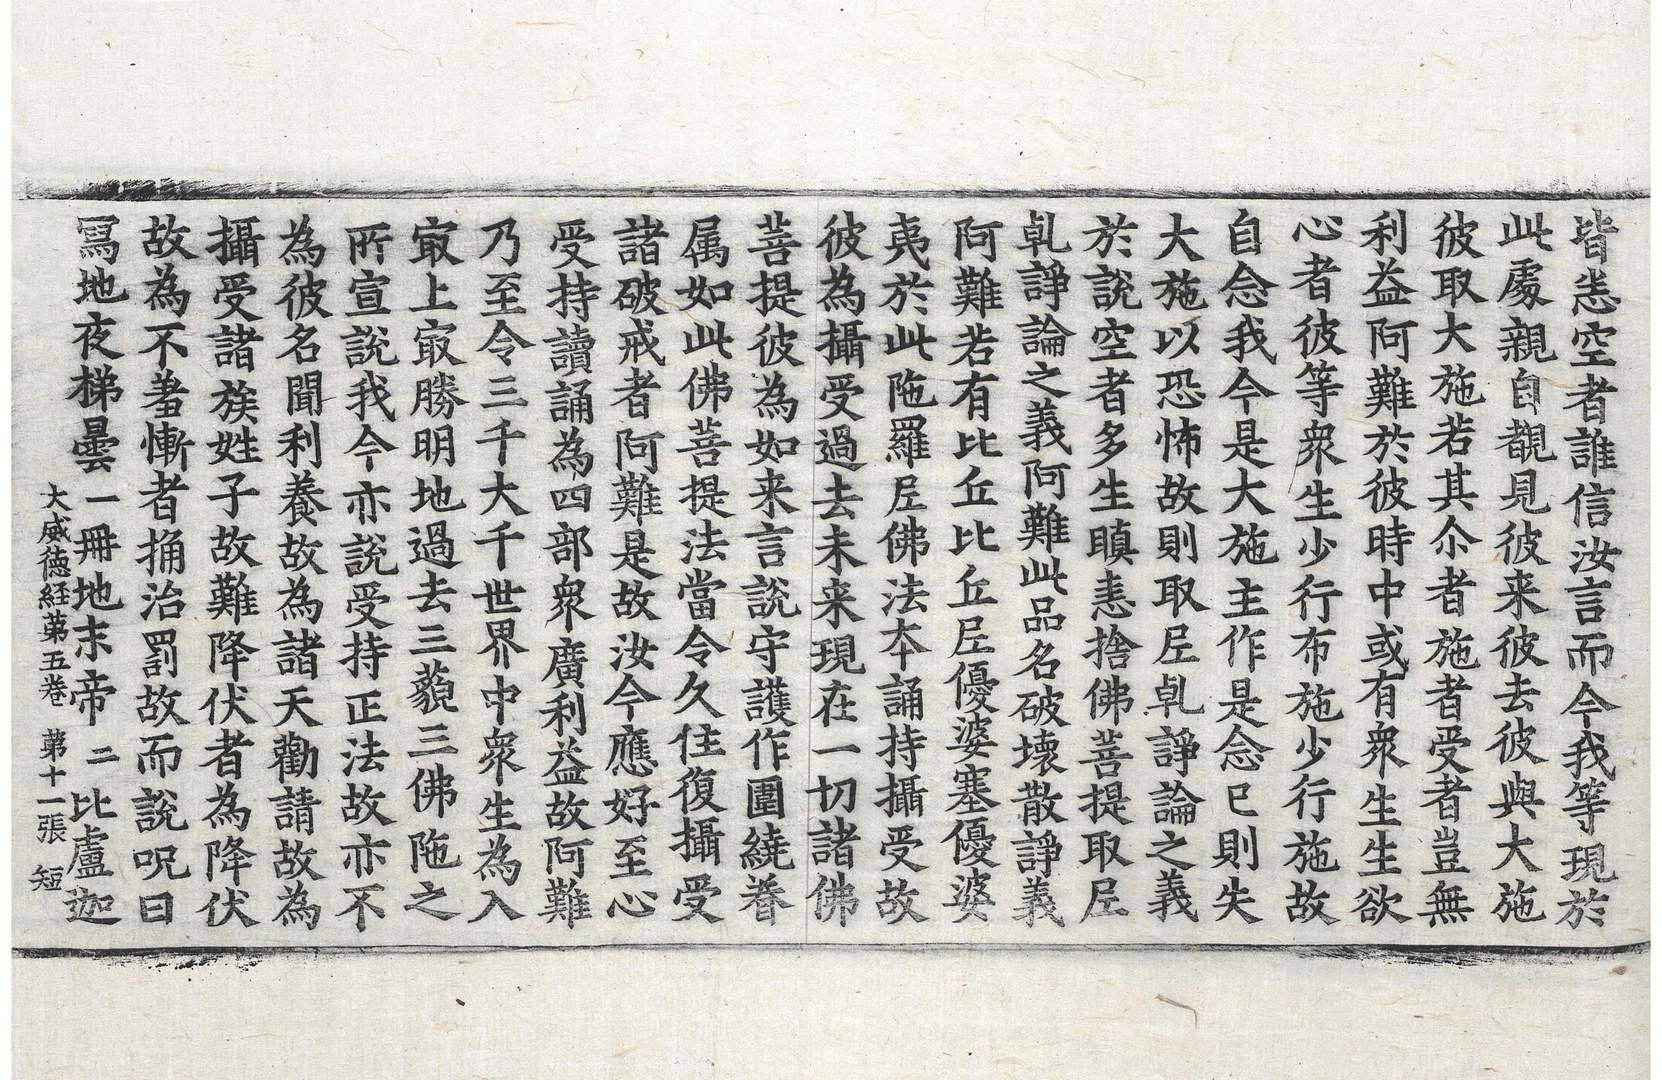 皆恚空者誰信汝言而今我等現於
此處親自覩見彼来彼去彼與大施
彼取大施若其尒者施者受者豈無
利益阿難於彼時中或有衆生生欲
心者彼等衆生少行布施少行施故
自念我今是大施主作是念已則失
大施以恐怖故則取𡰱乹諍論之義
於說空者多生瞋恚捨佛菩提取𡰱
乹諍論之義阿難此品名破壞散諍義
阿難若有比丘比丘𡰱優婆塞優婆
夷於此陁羅𡰱佛法夲誦持攝受故
彼為攝受過去未来現在一切諸佛
菩提彼為如来言說守護作圍繞眷
属如此佛菩提法當令久住復攝受
諸破戒者阿難是故汝今應好至心
受持讀誦為四部衆廣利益故阿難
乃至令三千大千世界中衆生為入
㝡上㝡勝明地過去三藐三佛陁之
所宣說我今亦說受持正法故亦不
為彼名聞利養故為諸天勸請故為
攝受諸族姓子故難降伏者為降伏
故為不羞慚者捔治罰故而說呪曰
冩地夜梯曇一冊地末帝二比盧迦
大威徳経第五卷 第十一張 短